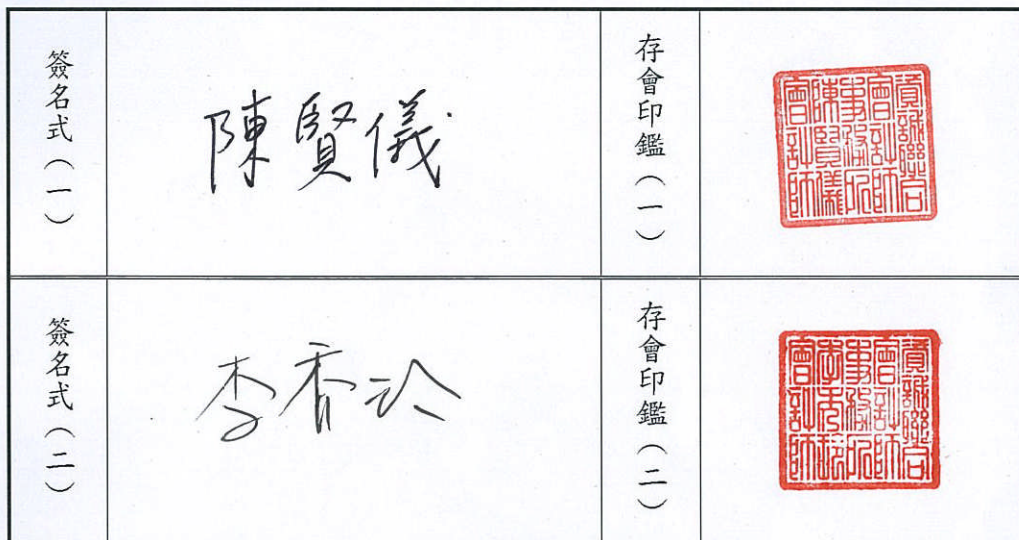 簽名式（一）
陳賢儀
存會印鑑（一）
資誠聯合
會計師
事務所
陳賢儀
會計師
簽名式（二）
李
存會印鑑（二）
資誠聯合
會計師
事務所
會計師